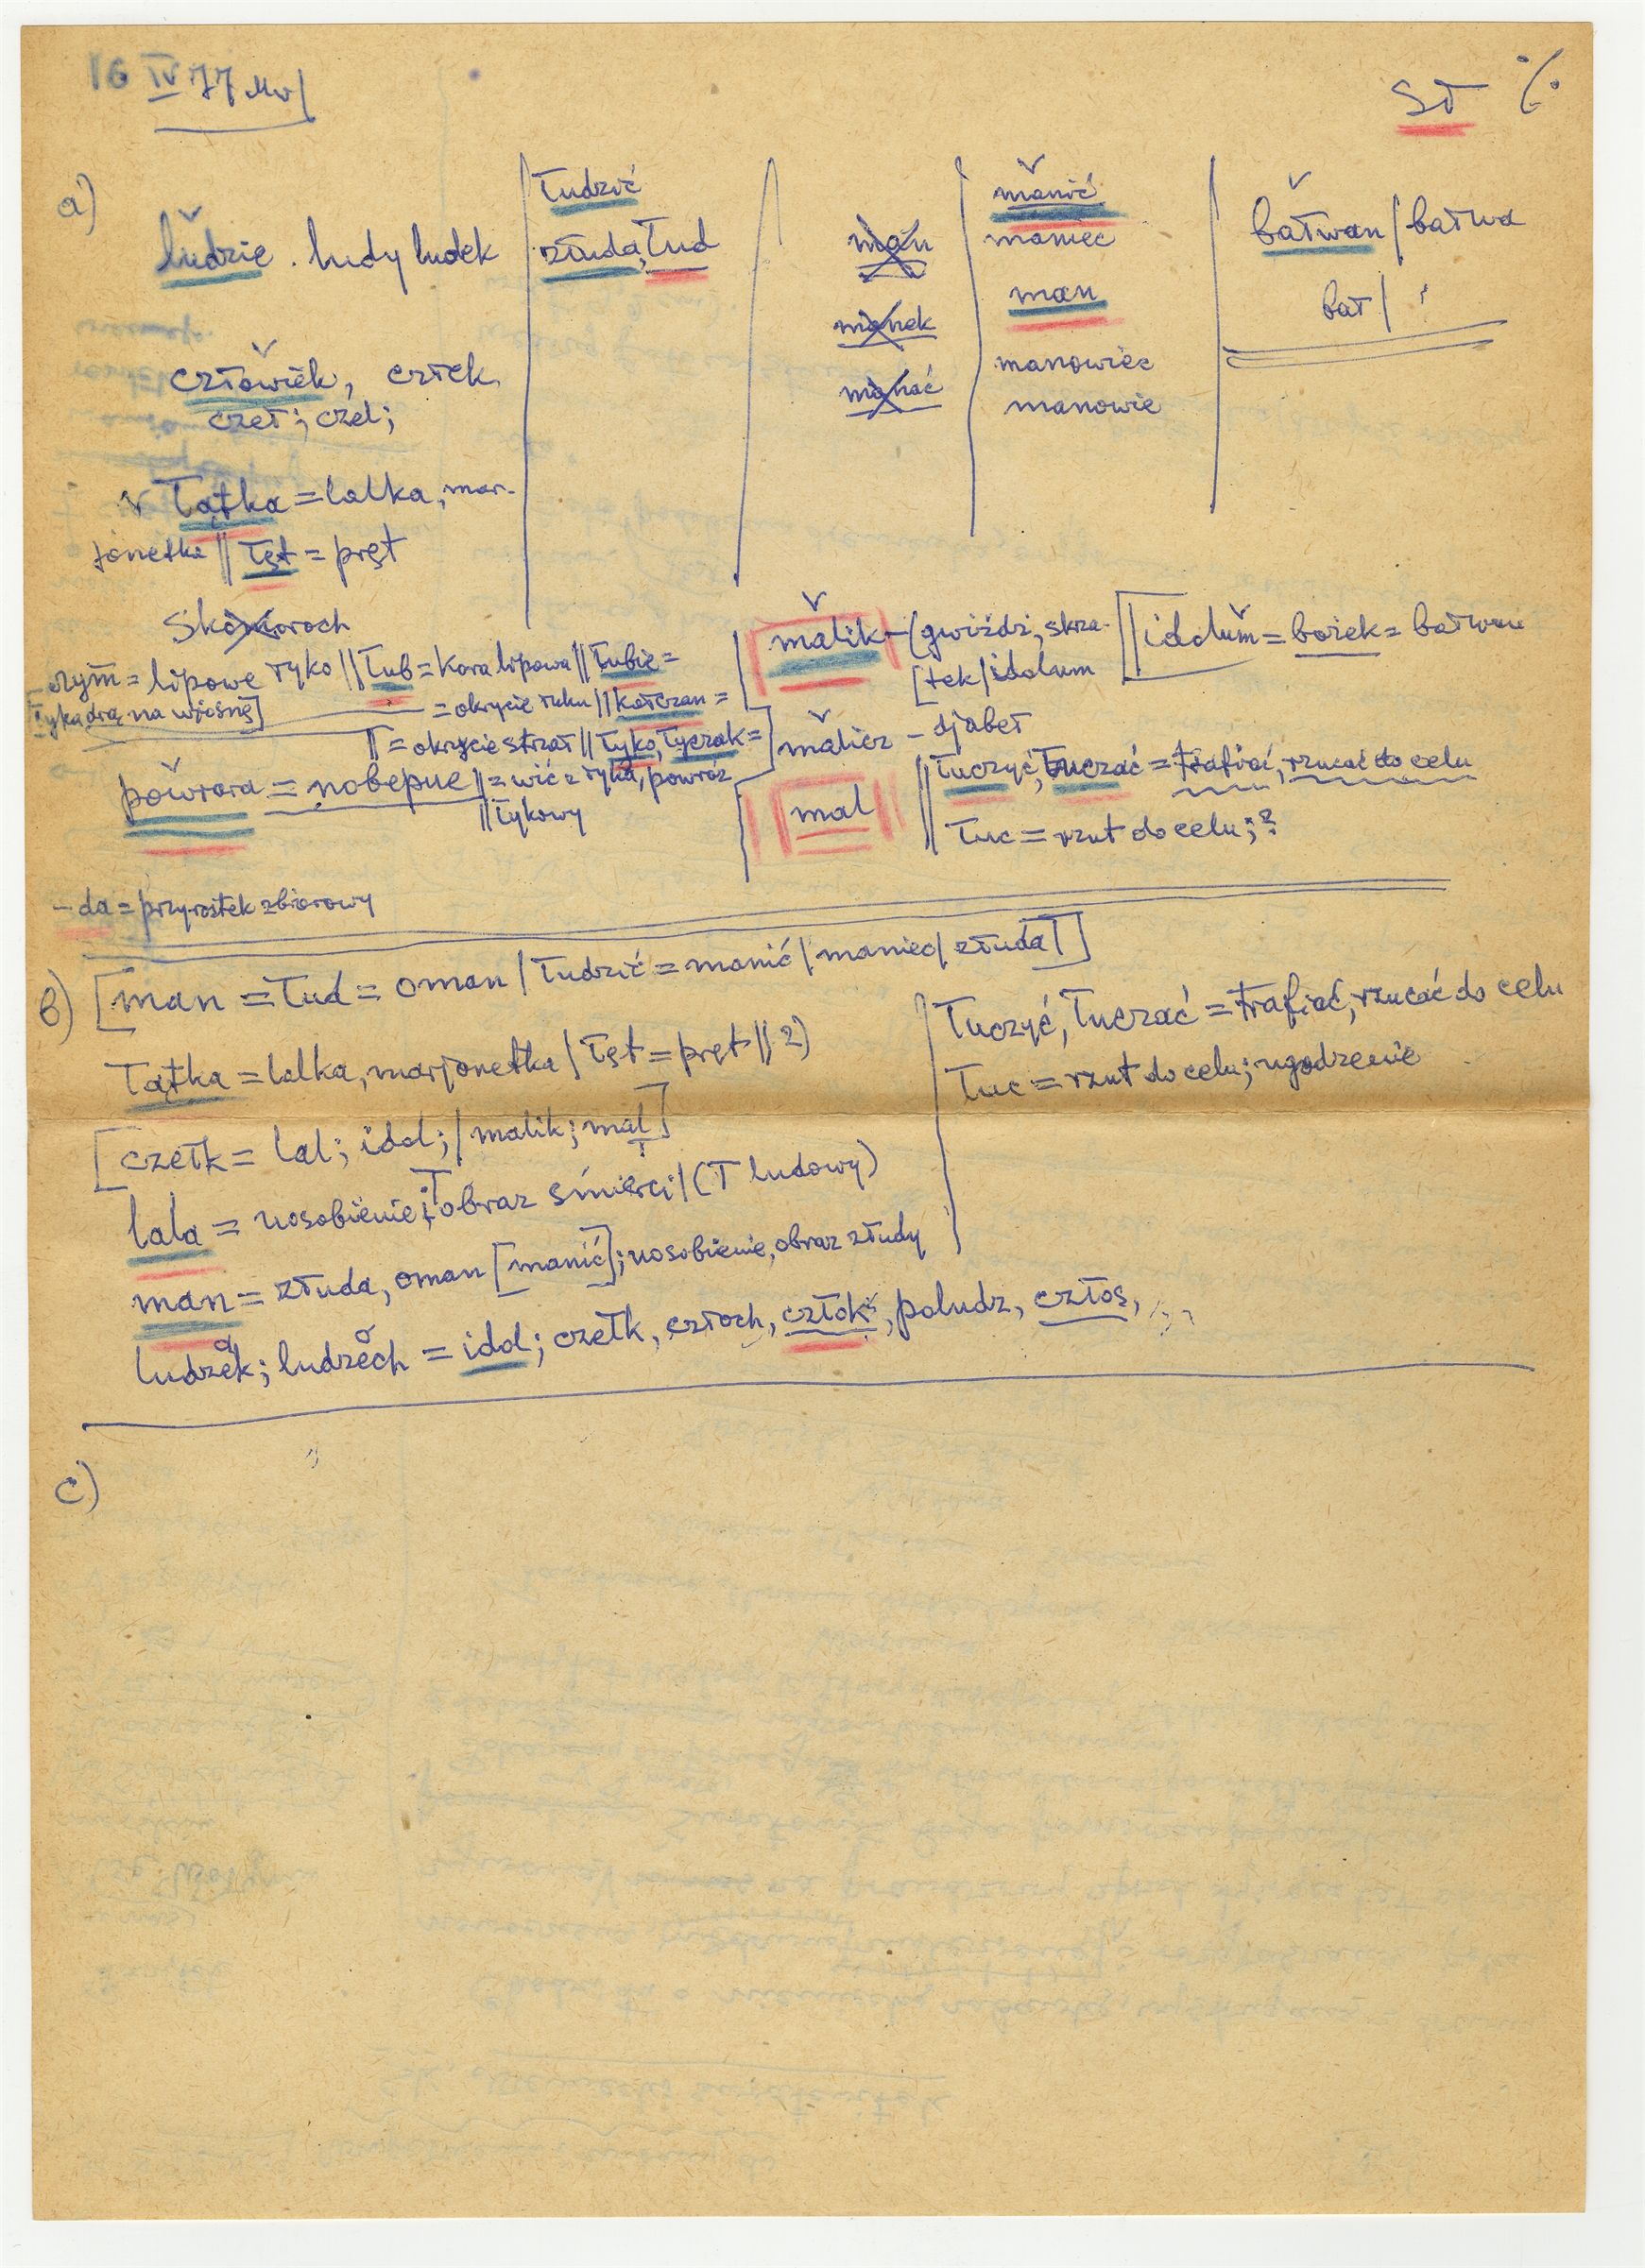 16 IV 77
SŁ
a)
ludzie . ludy ludek
człowiek, człek
czeł; czel;
Łątka = lalka, mar-
jonetka || Łęt = pręt
Skomoroch
łudzić
złuda, Łud
man
manek
manać
manić
maniec
man
manowiec
manowie
bałwan / bałwa
bał /
łym = lipowe łyko || Łub = kora lipowa || Łubie =
[łyka drą na wiosnę] = okrycie łuku || kołczan =
= okrycie strzał || Łyko, Łyczak =
powraza = || = wić z łyka, powróz
|| łykowy
malik - (gwiżdż, skrza-
[tek / idolum
[idolum = bożek = bałwan
malicz - djabeł
mal
|| Łuczyć, Łuczać = trafiać, rzucać do celu
Łuc = rzut do celu; ?
- da = przyrostek zbiorowy
b) [man = Łud = oman / Łudzić = manić / maniec / złuda]
Łątka = lalka, marjonetka / Łęt = pręt || 2)
[czełk = lal; idol; / malik; mal]
lala = uosobienie; obraz śmierci / (T ludowy)
man = złuda, oman [manić]; uosobienie, obraz złudy
ludzek; ludzech = idol; czełk, człoch, człok, poludz, człos,
Łuczyć, Łuczać = trafiać, rzucać do celu
Łuc = rzut do celu; ugodzenie
c)